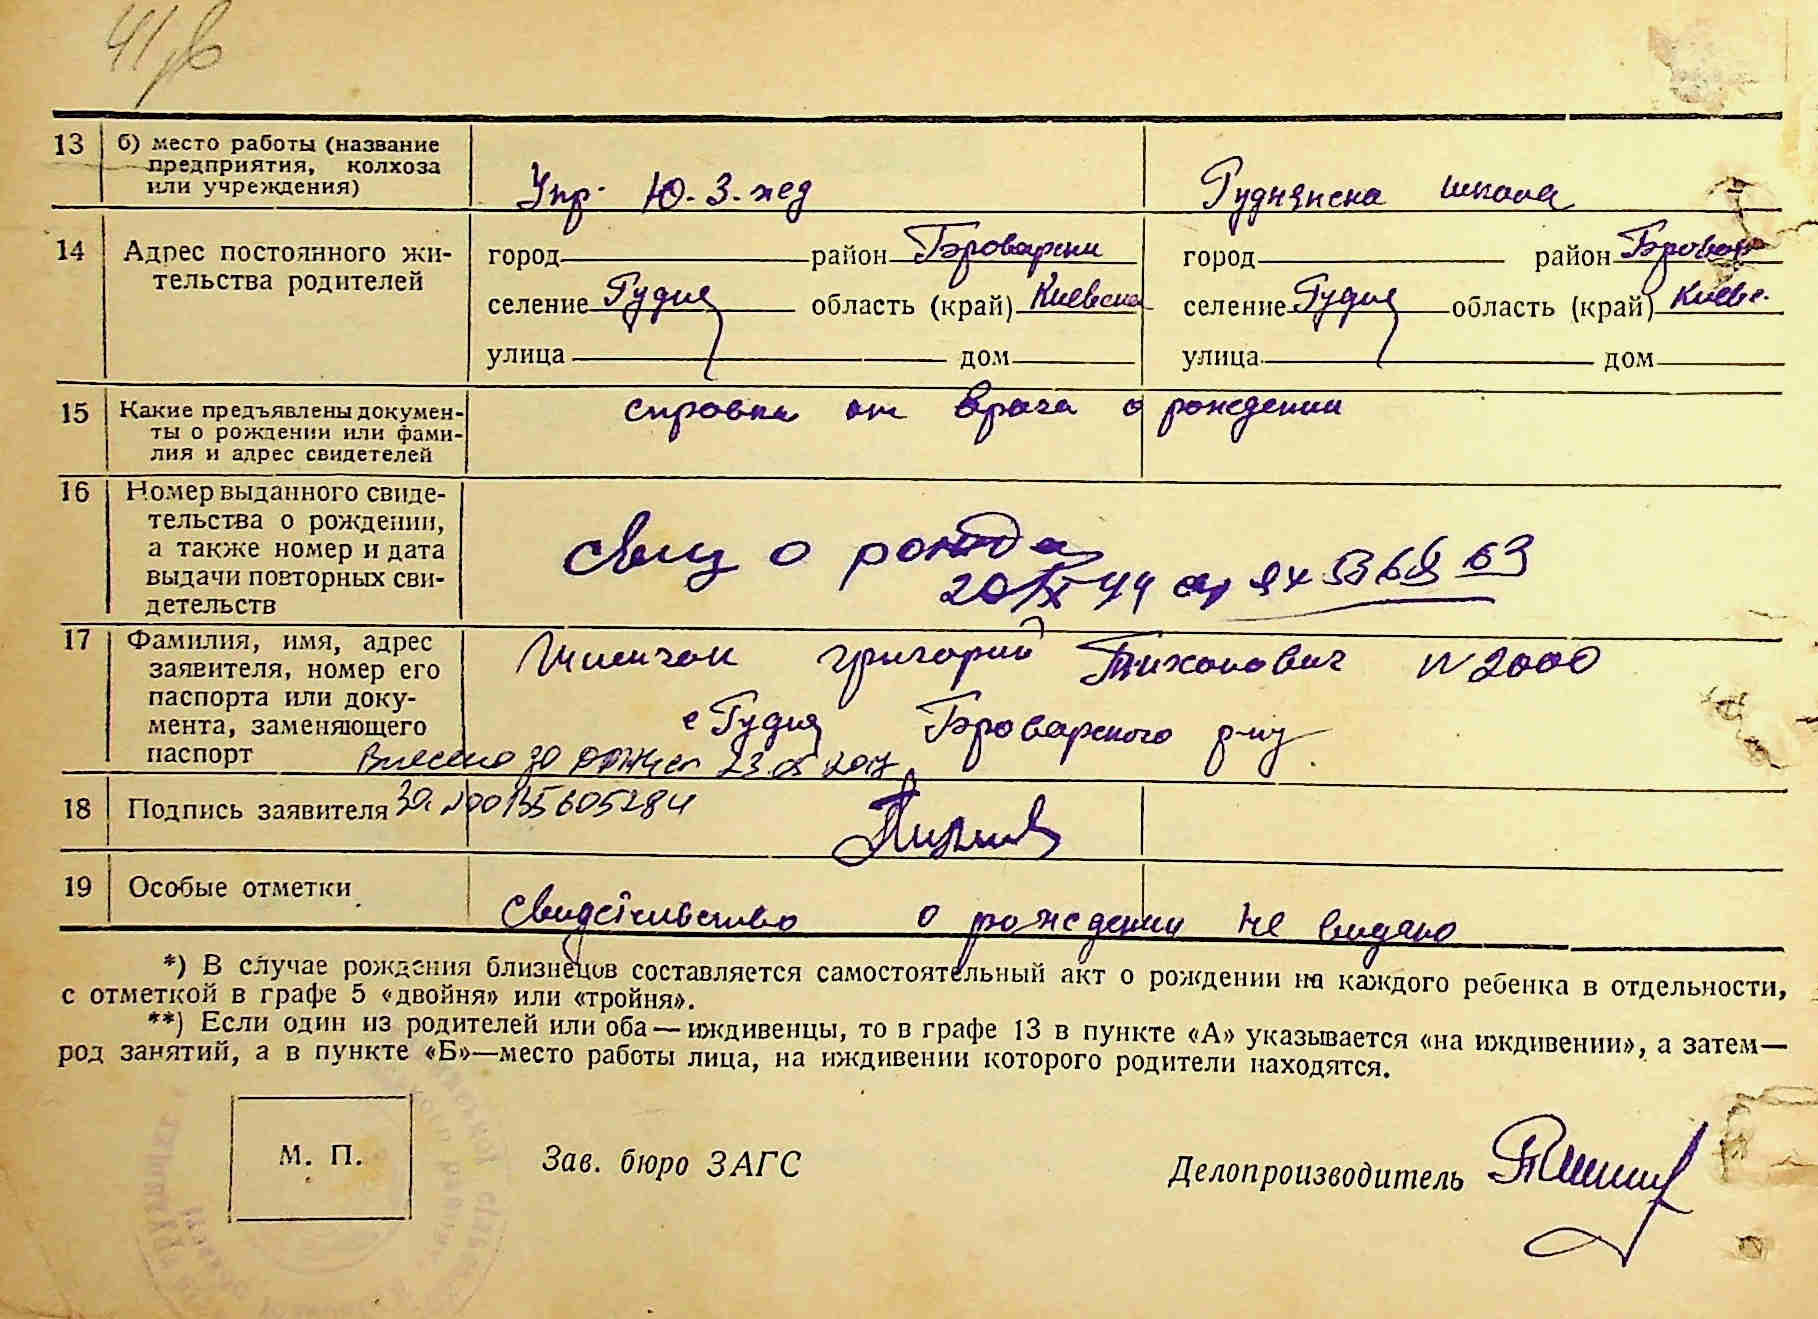 13 б) место работы (название
предприятия, колхоза
или учреждения) Упр. Ю.З. жед Руднянска школа
14 Адрес постоянного жи-
тельства родителей
город район Броварски город район Бровар
селение Рудня область (край) Киевска селение Рудня область (край) Киевс.
улица дом улица дом
15 Какие предъявлены докумен-
ты о рождении или фами-
лия и адрес свидетелей
справка от врача о рождении
16 Номер выданного свиде-
тельства о рождении,
а также номер и дата
выдачи повторных сви-
детельств
о рожд
17 Фамилия, имя, адрес
заявителя, номер его
паспорта или доку-
мента, заменяющего
паспорт
Григорий Тихонович N 2000
с Рудня Броварского р-ну
Внесено до 23.05.2017
18 Подпись заявителя за №00135605284
19 Особые отметки
Свидетельство о рождении не видано
*) В случае рождения близнецов составляется самостоятельный акт о рождении на каждого ребенка в отдельности,
с отметкой в графе 5 «двойня» или «тройня».
**) Если один из родителей или оба — иждивенцы, то в графе 13 в пункте «А» указывается «на иждивении», а затем—
род занятий, а в пункте «Б»—место работы лица, на иждивении которого родители находятся.
М. П.
Зав. бюро ЗАГС
Делопроизводитель